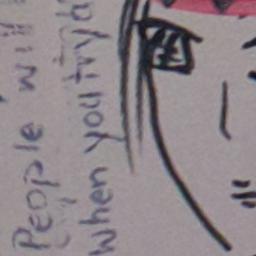 People will
when you try